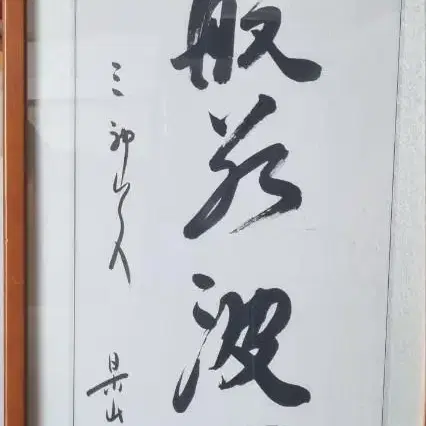 般若波
三神山人 杲山